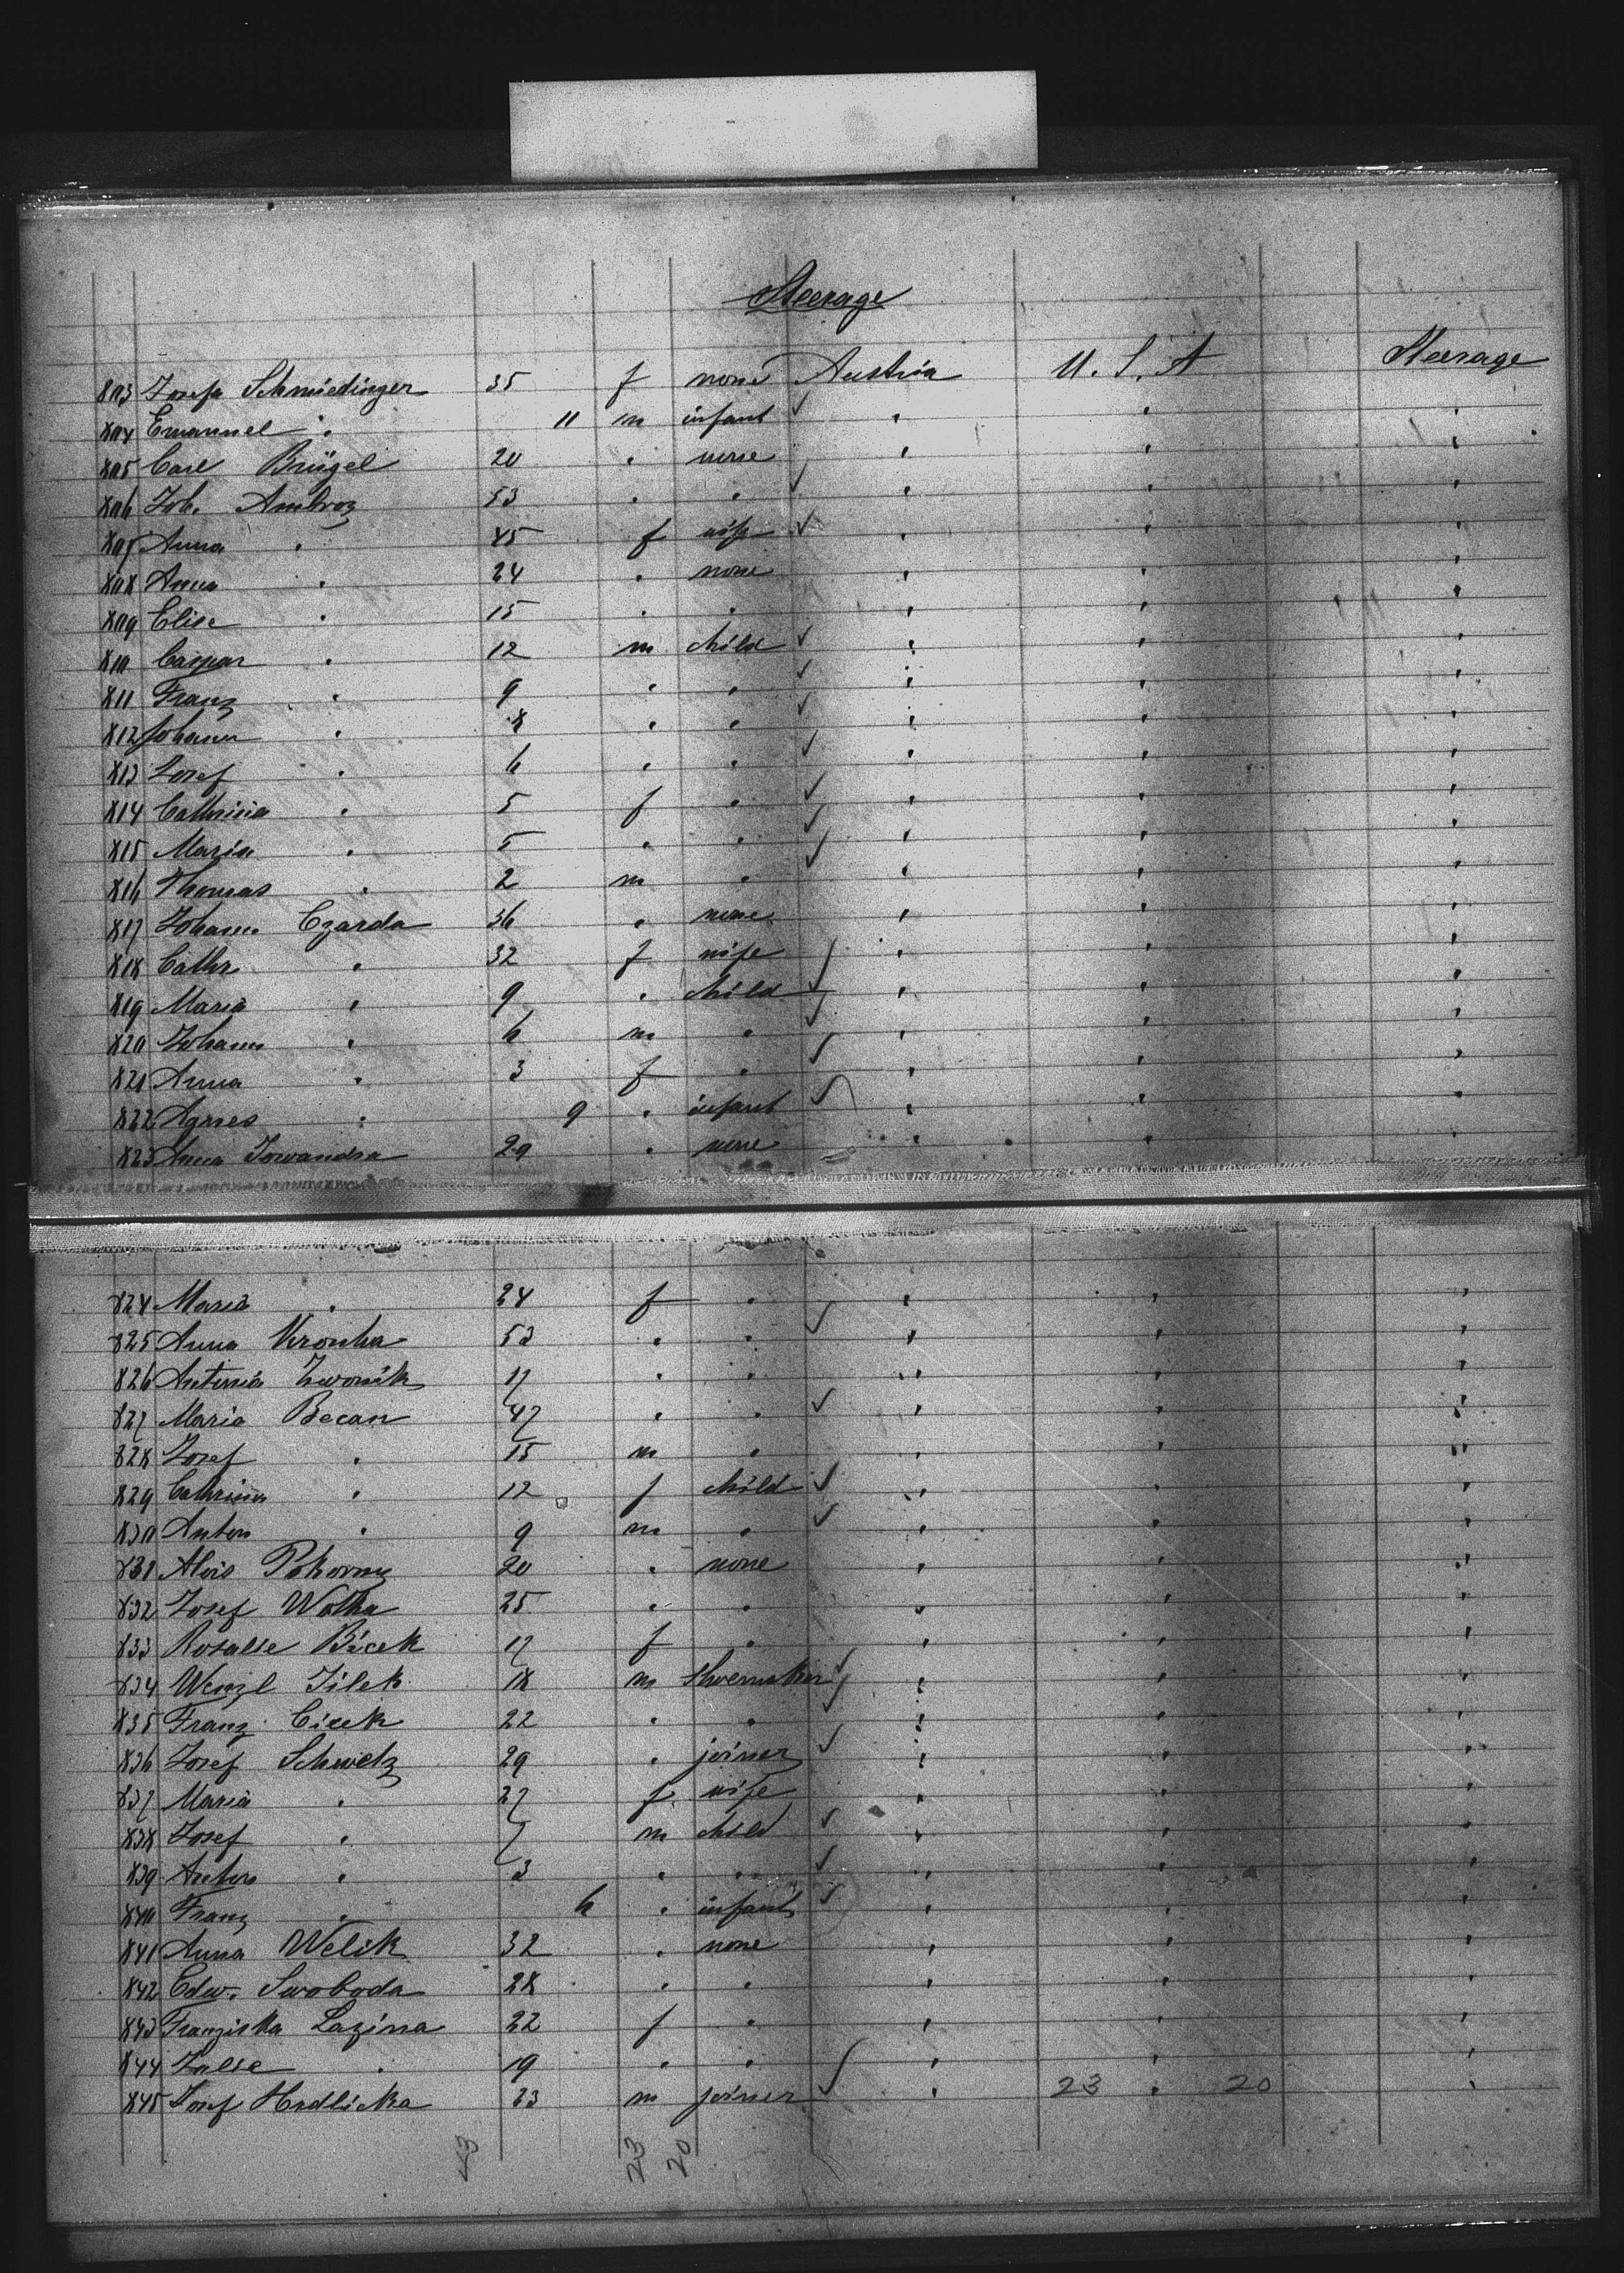 Steerage
803 Josefa Schmiedinger 35 f none Austria U. S. A Steerage
804 Emanuel " 11 m infant ✓ " " "
805 Carl Brügel 20 " none " " "
806 Joh. Ambroz 53 " " ✓ " " "
807 Anna " 45 f wife ✓ " " "
808 Anna " 24 " none " " "
809 Elise " 15 " " " " "
810 Caspar " 12 m child ✓ " " "
811 Franz " 9 " " ✓ " " "
812 Johann " 8 " " ✓ " " "
813 Josef " 6 " " ✓ " " "
814 Cathrina " 5 f " ✓ " " "
815 Maria " 5 " " ✓ " " "
816 Thomas " 2 m " ✓ " " "
817 Johann Czarda 36 " none " " "
818 Cathr " 32 f wife ✓ " " "
819 Maria " 9 " child ✓ " " "
820 Johann " 6 m " ✓ " " "
821 Anna " 3 f " ✓ " " "
822 Agnes " 9 " infant ✓ " " "
823 Anna 29 " none " " "
824 Maria " 24 f " " " "
825 Anna 53 " " ✓ " " "
826 Antonia 17 " " " " "
827 Maria Becan 47 " " ✓ " " "
828 Josef " 15 m " " " "
829 Cathrina " 12 f child ✓ " " "
830 Anton " 9 m " ✓ " " "
831 Alois Pokorny 20 " none " " "
832 Josef Wotka 25 " " " " "
833 Rosalie Bicek 17 f " " " "
834 Wenzl Jilek 18 m shoemaker ✓ " " "
835 Franz Cicek 22 " " ✓ " " "
836 Josef Schwetz 29 " joiner ✓ " " "
837 Maria " 27 f wife " " "
838 Josef " 7 m child ✓ " " "
839 Anton " 3 " " ✓ " " "
840 Franz " 6 " infant ✓ " " "
841 Anna Welik 32 " none " " "
842 Edw. Swoboda 28 " " " " "
843 Franziska Lazina 22 f " " " "
844 Julie " 19 " " " " "
845 Josef Hrdlicka 23 m joiner ✓ " 23 " 20 "
43 23 20